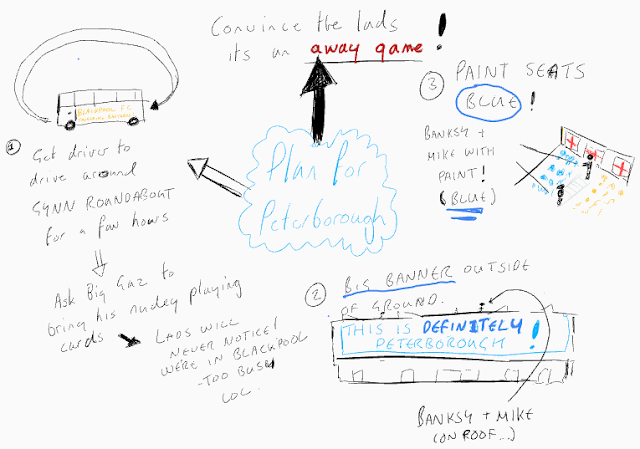 Convince the lads
its an away game!
Plan for
Peterborough
BLACKPOOL F.C
1
Get driver to
drive around
GYNN ROUNDABOUT
for a few hours
Ask Big Gaz to
bring his nudey playing
cards
LADS WILL
NEVER NOTICE!
WE'RE IN BLACKPOOL
-TOO BUSY
LOL.
2
BIG BANNER OUTSIDE
OF GROUND.
THIS IS DEFINITELY
PETERBOROUGH!
BANKSY + MIKE
(ON ROOF...)
3
PAINT SEATS
BLUE!
BANKSY +
MIKE WITH
PAINT!
(BLUE)